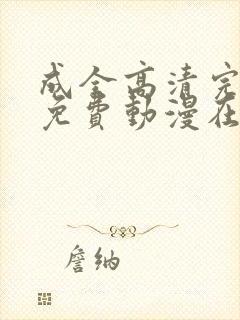 成全高清完
免費動漫在
詹納